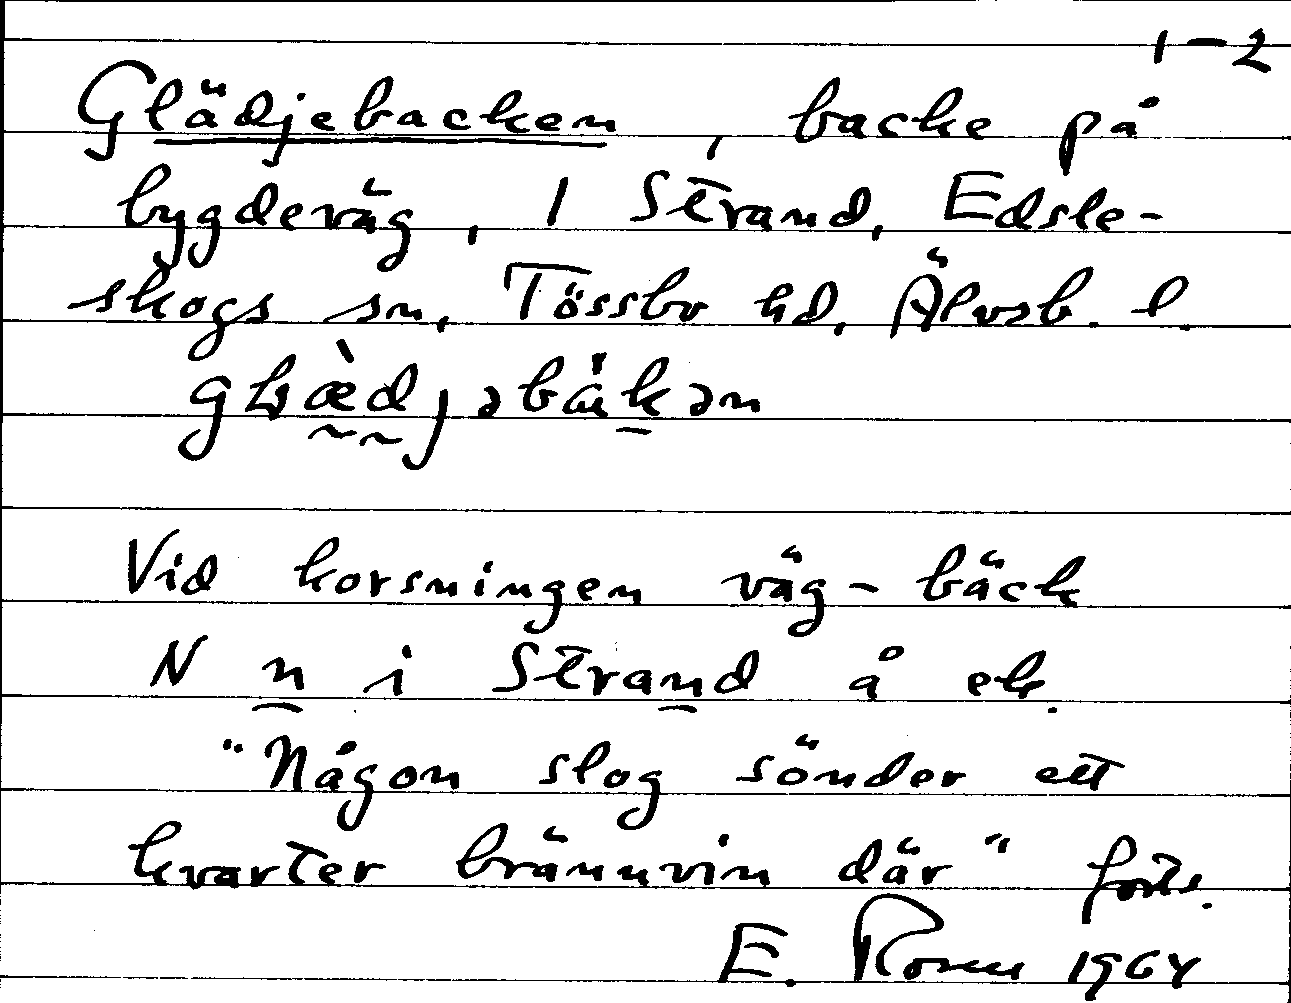 1-2
Glädjebacken, backe på
bygdeväg, 1 Strand, Edsle-
skogs sn, Tössbo hd, Älvsb. l.
Vid korsningen väg - bäck
N n i Strand å ek.
"Någon slog sönder ett
kvarter brännvin där" forts.
E. 1964